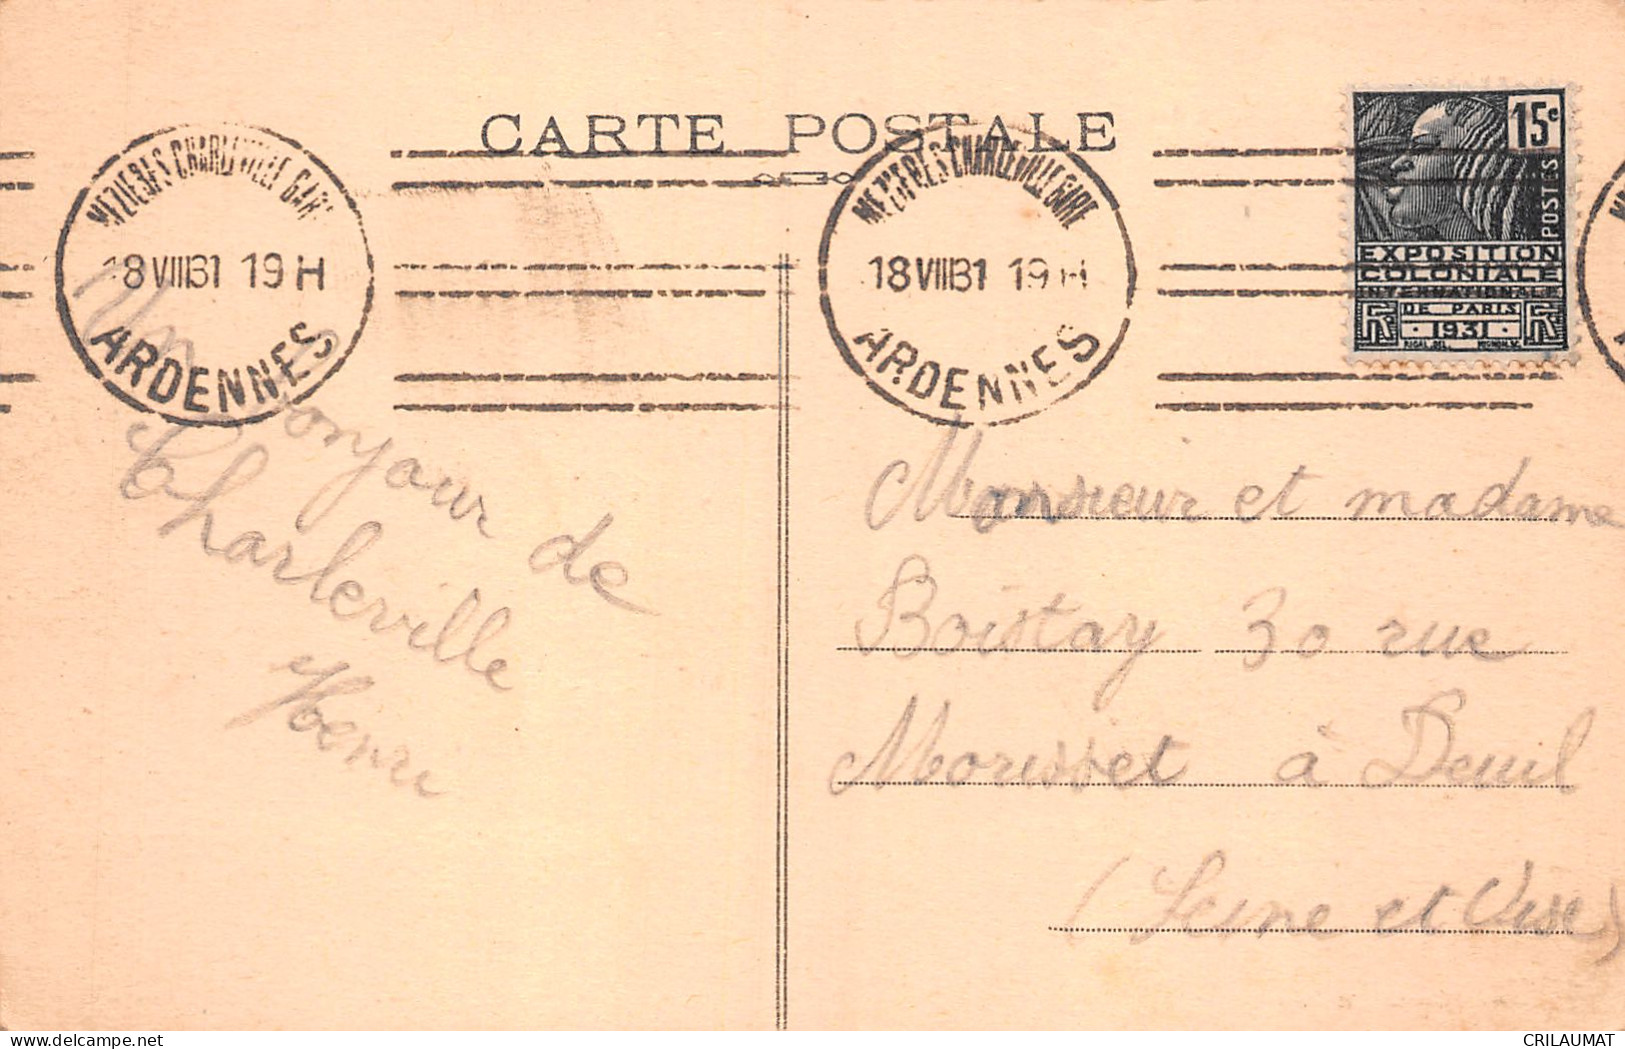 CARTE POSTALE
MEZIERES CHARLEVILLE GARE
18 VIII 31 19 H
ARDENNES
MEZIERES CHARLEVILLE GARE
18 VIII 31 19 H
ARDENNES
15c
POSTES
EXPOSITION
COLONIALE
INTERNATIONALE
DE PARIS
1931
RF
RF
Un bonjour de
Charleville
Henri
Monsieur et madame
Boistay 30 rue
Morisset à Deuil
(Seine et Oise)
CRILAUMAT